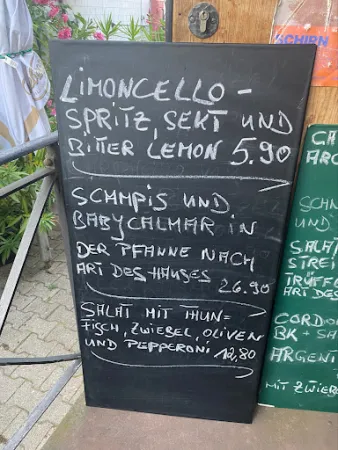 LIMONCELLO -
SPRITZ, SEKT UND
BITTER LEMON 5.90
SCAMPIS UND
BABYCALMAR IN
DER PFANNE NACH
ART DES HAUSES
26.90
SALAT MIT THUN=
FISCH, ZWIEBEL, OLIVEN
UND PEPPERONI 12,80
SCHIRN
UND
SALAT
STREI
TRÜFFE
ART DES
CORDO
BK + SA
ARGENT
MIT ZWIEB